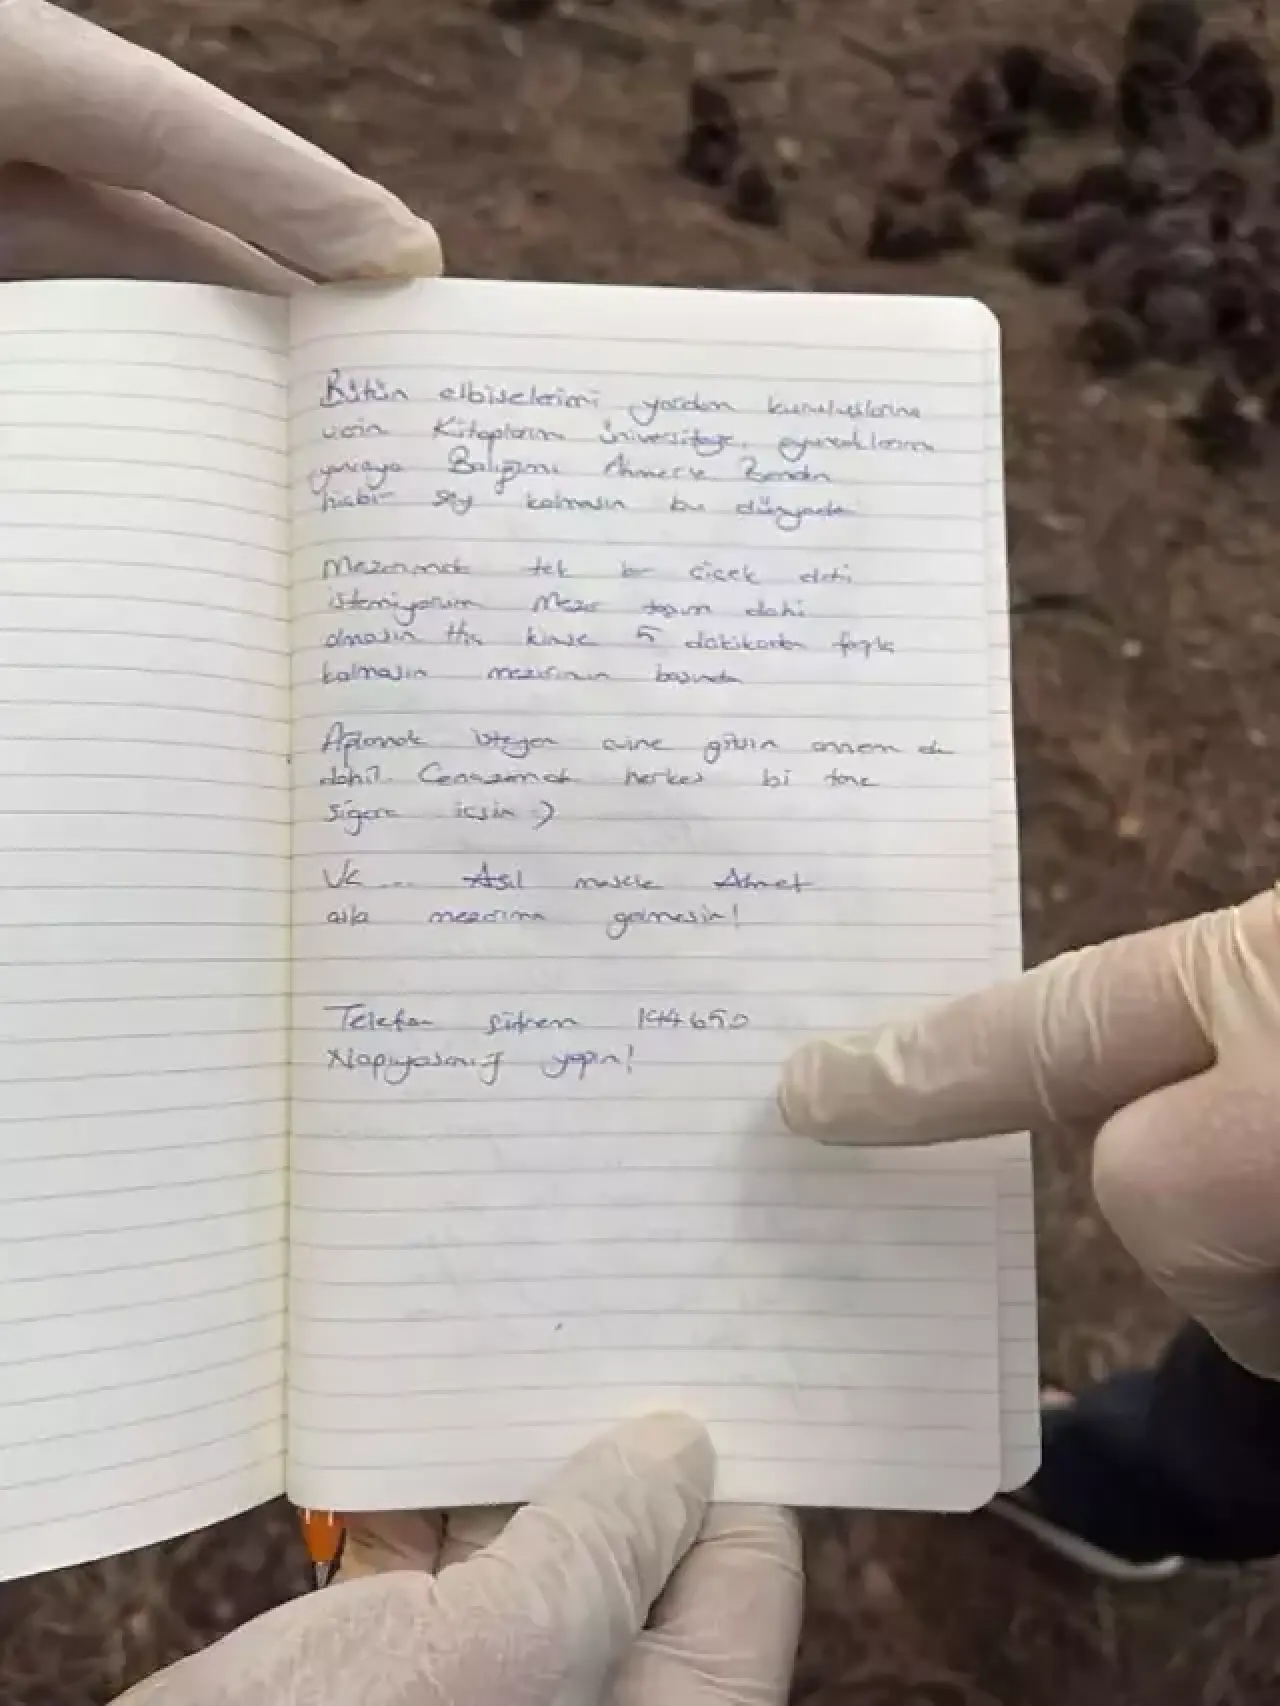 Bütün elbiselerimi yardım kuruluşlarına
verin Kitaplarım üniversiteye, oyuncaklarım
yuvaya Balığımı Ahmet'e Benden
hiçbir şey kalmasın bu dünyada
Mezarımda tek bir çiçek dahi
istemiyorum Mezar taşım dahi
olmasın Hiç kimse 5 dakikadan fazla
kalmasın mezarımın başında
Ağlamak isteyen evine gitsin annem de
dahil. Cenazemde herkes bi tane
sigara içsin :)
Ve ... Asıl mesele Ahmet
asla mezarıma gelmesin!
Telefon şifrem 144650
Napıyosanız yapın!